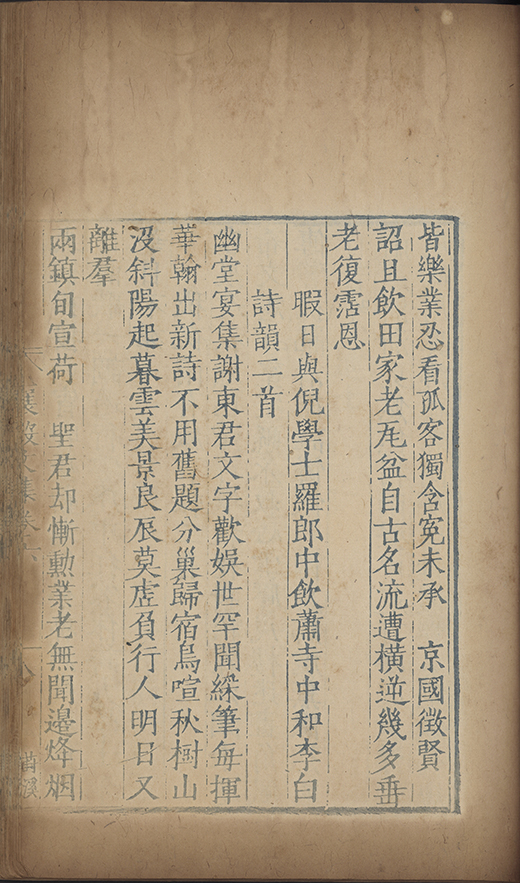 皆樂業忍看孤客獨含寃未承　京國徴賢
詔且飲田家老瓦盆自古名流遭横逆幾多垂
老復霑恩
暇日與倪學士羅郎中飲蕭寺中和李白
詩韻二首
幽堂宴集謝東君文字歡娱世罕聞綵筆每揮
華翰出新詩不用舊題分巢歸宿鳥喧秋樹山
没斜陽起暮雲美景良辰莫虚負行人明日又
離羣
兩鎮旬宣荷　聖君却慚勲業老無聞邉烽烟
襄毅文集卷六
八